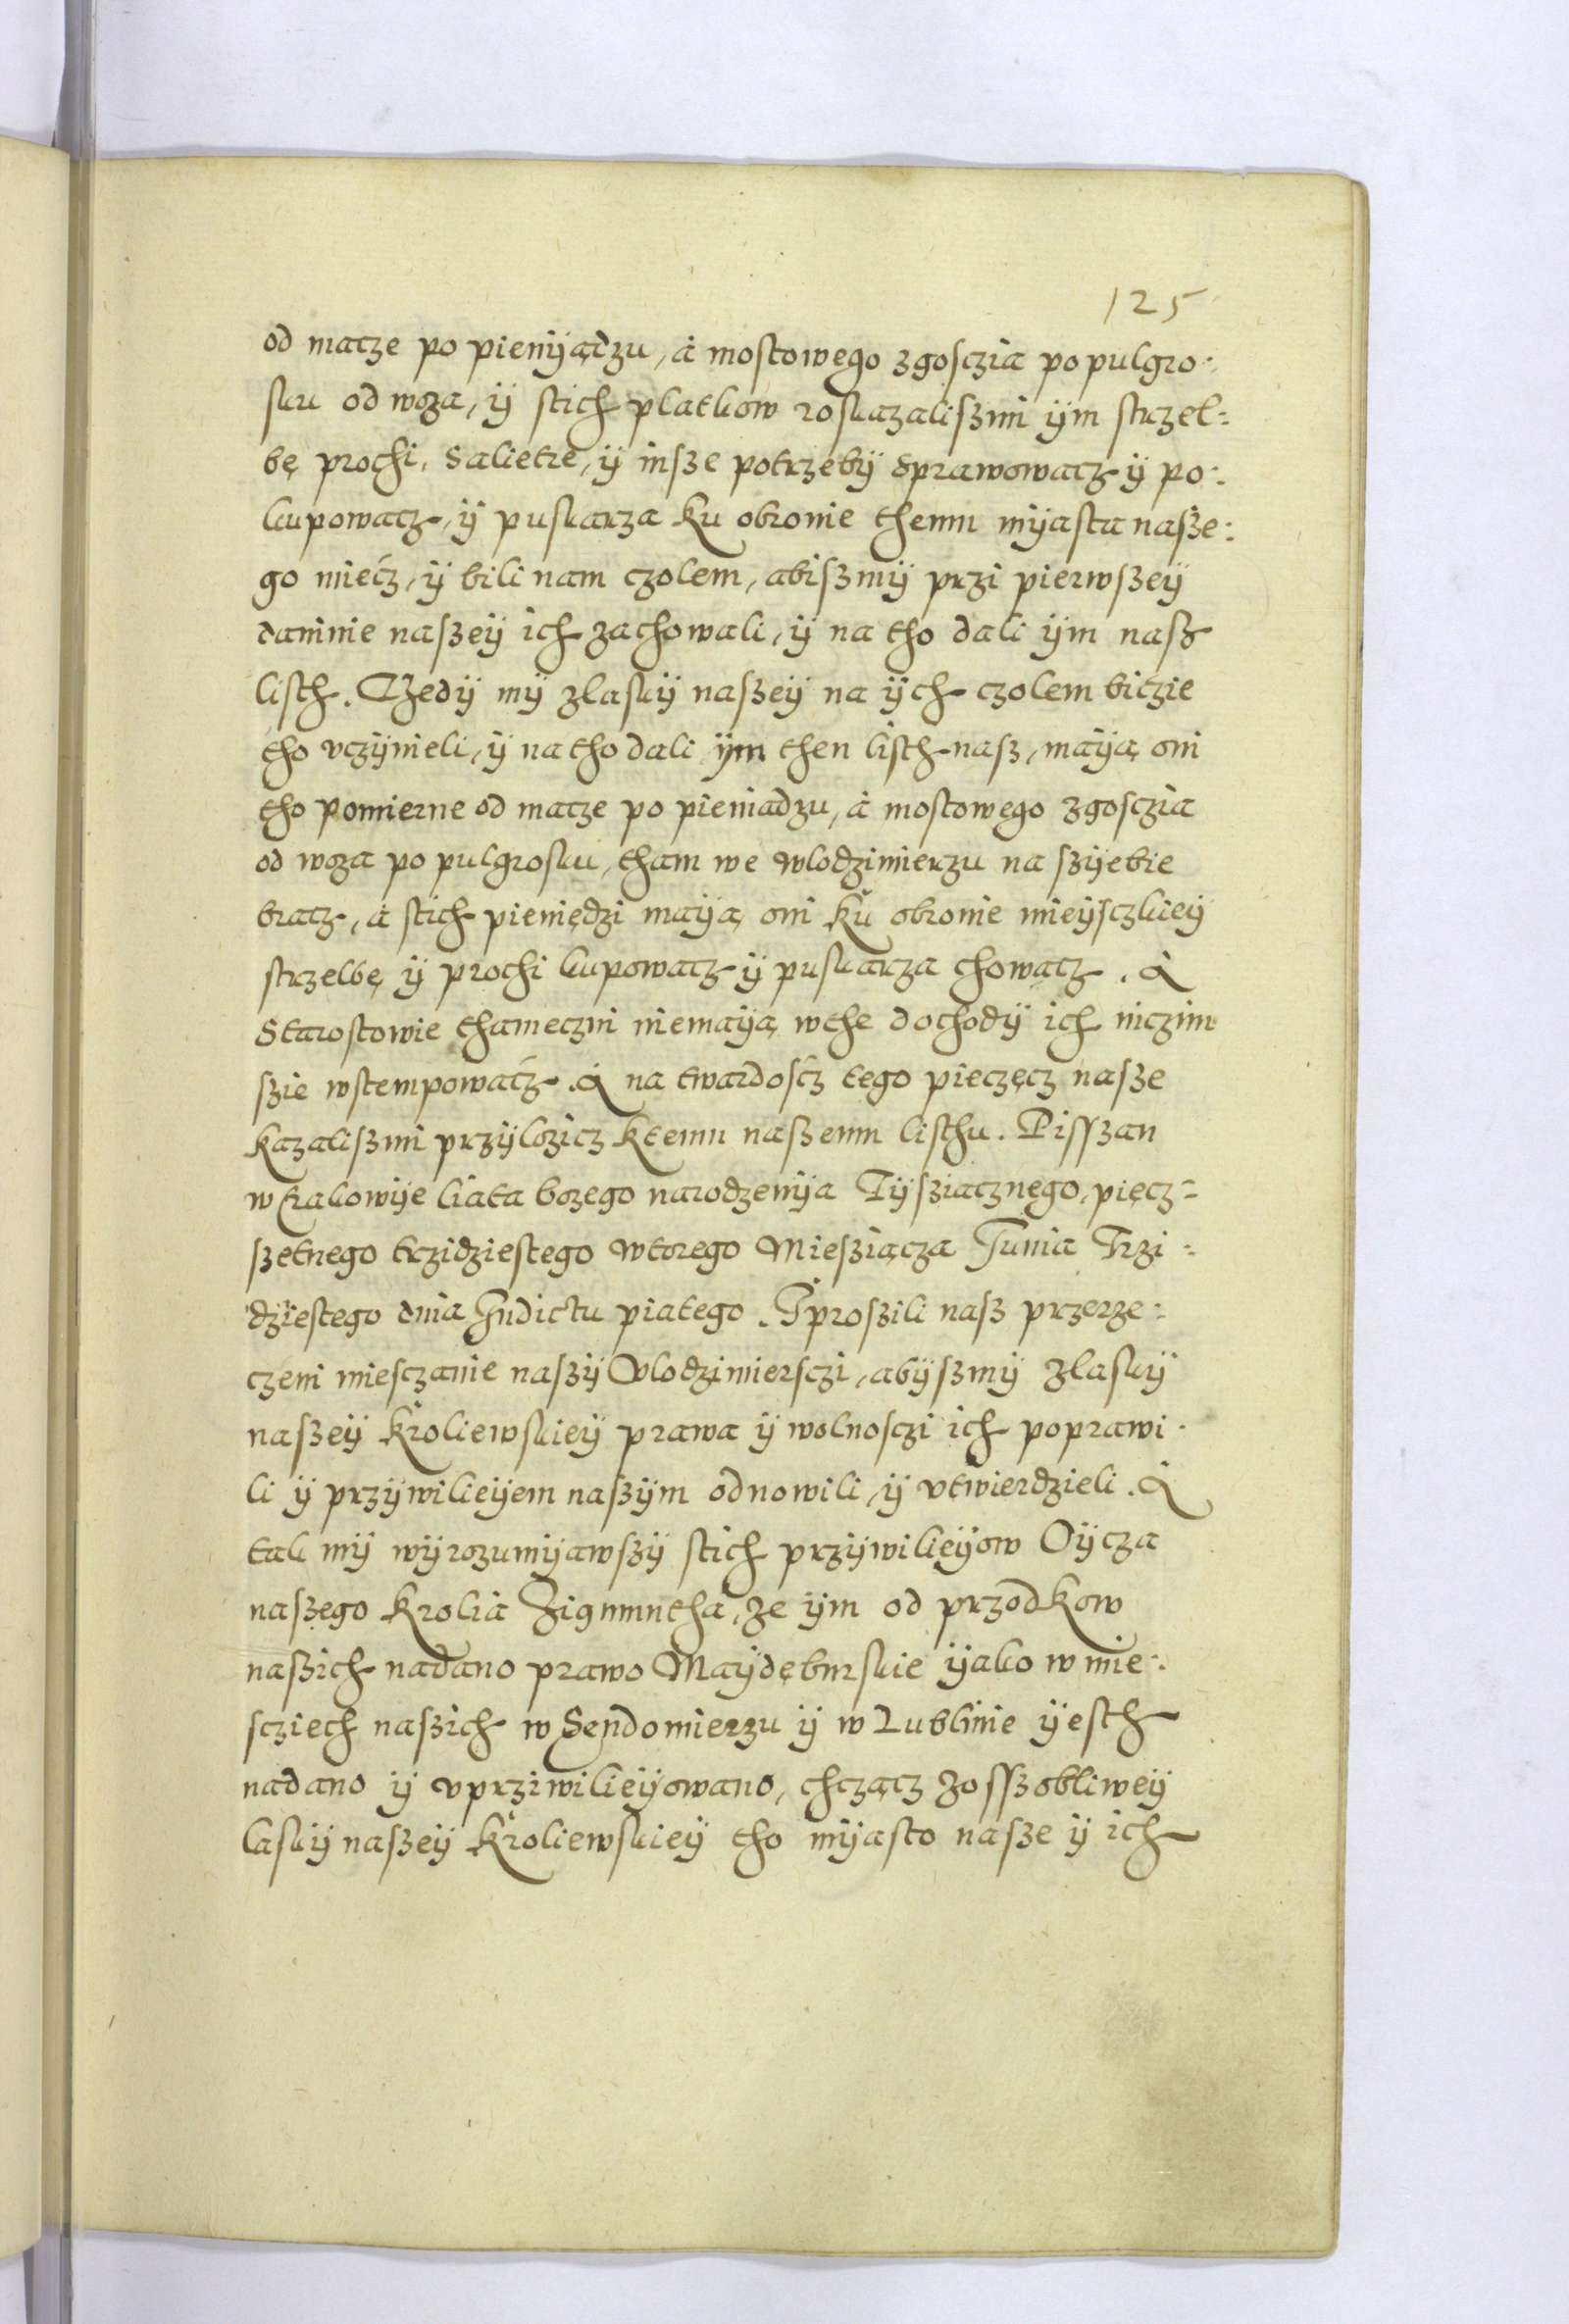 125
od macze po pieniyądzu, á mostowego zgosczia po pulgro-
sku od woza, ÿ stich platkow roskazaliszmi ÿm strzel=
bę prochi, Salietre, ÿ insze potrzebÿ sprawowacz ÿ po-
kupowacz, ÿ puskarza ku obronie themu mÿasta nasze=
go miecz, ÿ bili nam czolem, abiszmÿ przi pierwszeÿ
daninie naszeÿ ich zachowali, ÿ na tho dali ÿm nasz
listh. Thedÿ mÿ zlaskÿ naszeÿ na ÿch czolem biczie
tho vczÿnieli, ÿ na tho dali ÿm then listh nasz, maÿą oni
tho pomierne od macze po pieniadzu, á mostowego zgosczia
od woza po pulgrosku, tham we wlodzimierzu na szÿebie
bracz, á stich pieniędzi maÿą oni ku obronie mieÿsczkieÿ
strzelbę ÿ prochi kupowacz ÿ puskarza chowacz. A
Starostowie thameczni niemaÿą wthe dochodÿ ich niczim
szie wstempowacz. A na twardoscz tego pieczęcz nasze
kazaliszmi przÿlozicz ktemu naszemu listhu. Pisszan
w Crakowÿe liata bozego narodzenÿa Tÿsziącznego, pięcz=
szetnego trzidziestego wtorego Miesziącza Junia Trzi=
dziestego dnia Indictu piatego. I proszili nasz przerze=
czeni miesczanie naszÿ Wlodzimiersczi, abÿszmÿ zlaskÿ
naszeÿ kroliewskieÿ prawa ÿ wolnosczi ich poprawi-
li ÿ przÿwilieÿem naszÿm odnowili, ÿ vtwierdzieli. A
tak mÿ wÿrozumÿawszÿ stich przÿwilieÿow Oÿcza
naszego krolia Zigmuntha, ze ÿm od przodkow
naszich nadano prawo Maÿdęburskie ÿako w mie-
scziech naszich w Sendomierzu ÿ w Lublinie ÿesth
nadano ÿ vprziwilieÿowano, chcząc zosszobliweÿ
laskÿ naszeÿ kroliewskieÿ tho mÿasto nasze ÿ ich